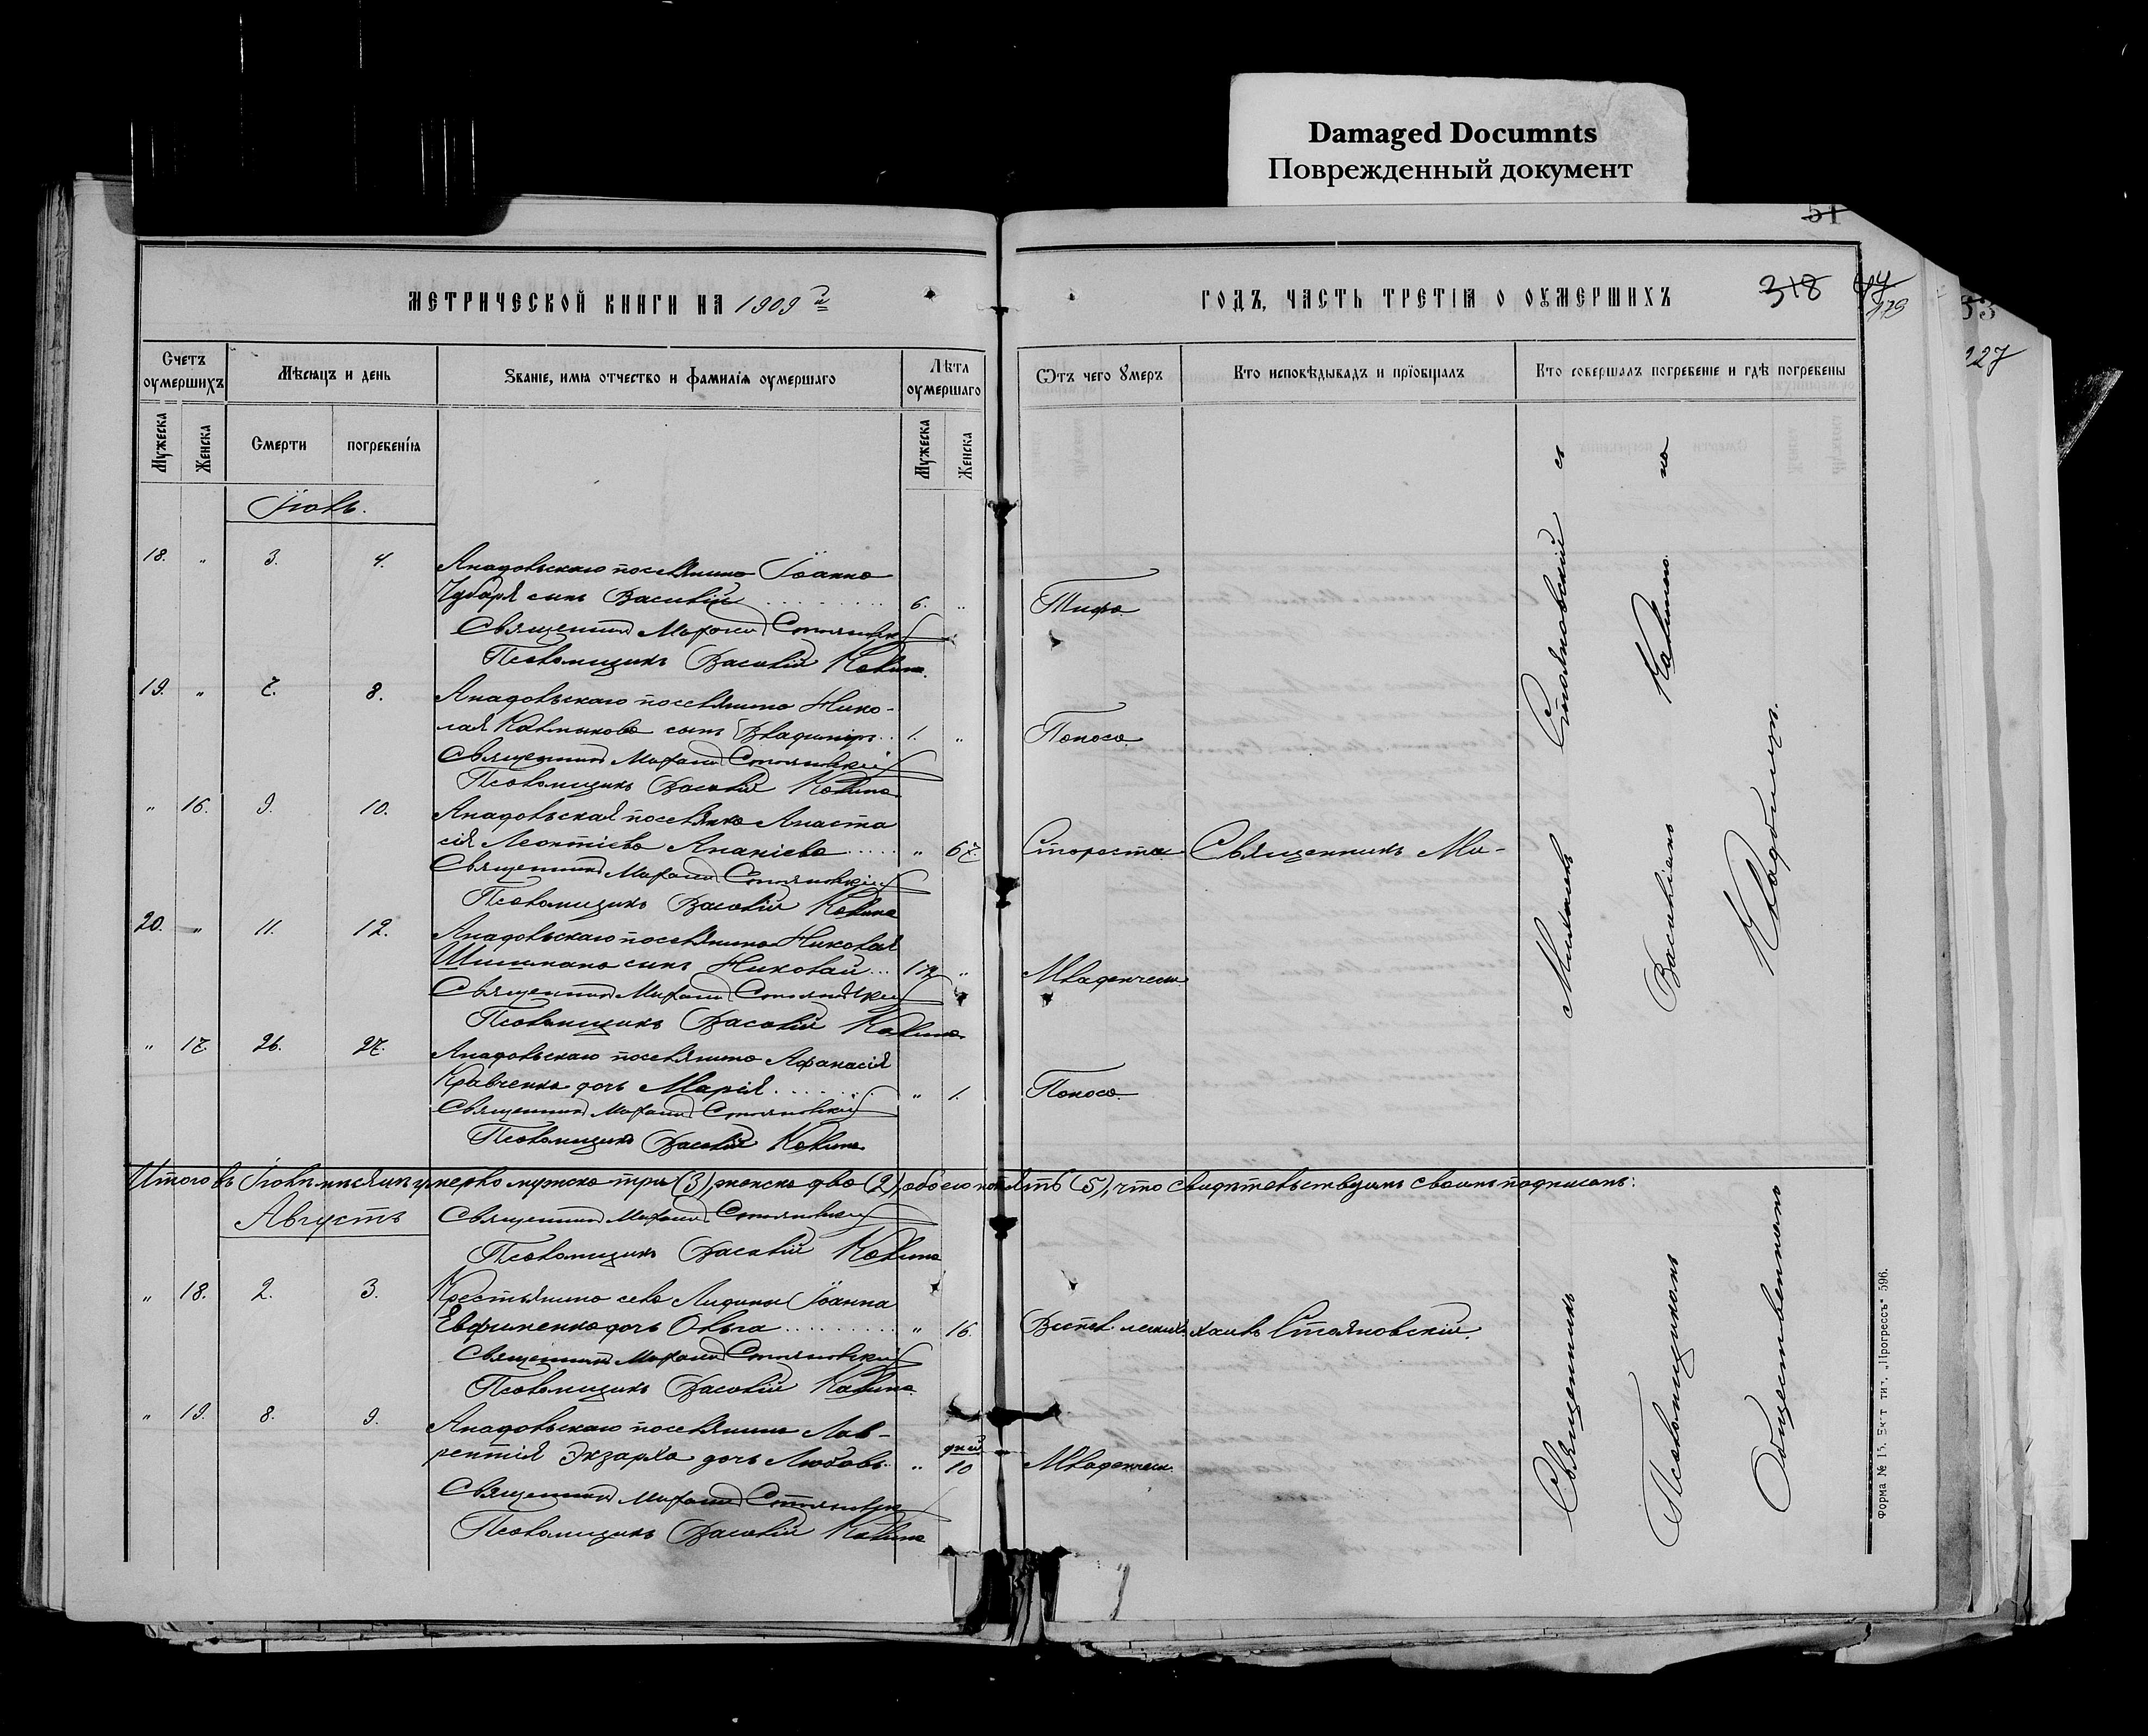 Damaged Documnts
Поврежденный документ
51
МЕТРИЧЕСКОЙ КНИГИ НА 1909 й
ГОДЪ, ЧАСТЬ ТРЕТІЯ О ОУМЕРШИХЪ
318
179
227
Счетъ оумершихъ
Мѣсяцъ и день
Званіе, имя отчество и фамилія оумершаго
Лѣта оумершаго
Отъ чего умеръ
Кто исповѣдывалъ и пріобщалъ
Кто совершалъ погребеніе и гдѣ погребены
Мужеска
Женска
Смерти
погребенія
Мужеска
Женска
Іюль.
18. " 3. 4. Анадольскаго поселянина Іоанна
Чубаря сынъ Василій 6. " Тифа
Священникъ Михаилъ Стояновскій
Псаломщикъ Василій Калина.
19. " 7. 8. Анадольскаго поселянина Нико-
лая Калмыкова сынъ Владиміръ 1. " Поноса.
Священникъ Михаилъ Стояновскій
Псаломщикъ Василій Калина
" 16. 9. 10. Анадольская поселянка Анаста
сія Леонтіева Ананіева " 67. Старости Священникъ Ми-
Священникъ Михаилъ Стояновскій
Псаломщикъ Василій Калина
20. " 11. 12. Анадольскаго поселянина Николая
Шишмана сынъ Николай " Младенческ.
Священникъ Михаилъ Стояновскій
Псаломщикъ Василій Калина
" 17. 26. 27. Анадольскаго поселянина Афанасія
Кравченка дочь Марія " 1. Поноса.
Священникъ Михаилъ Стояновскій
Псаломщикъ Василій Калина
Итого въ Іюлѣ мѣсяцѣ умерло мужска три (3), женска два (2), обоего пола пять (5), что свидѣтельствуемъ своимъ подписомъ:
Августъ
Священникъ Михаилъ Стояновскій
Псаломщикъ Василій Калина
" 18. 2. 3. Крестьянина села Лидина Іоанна
Евфименка дочь Ольга " 16. Воспал. легкихъ хаилъ Стояновскій.
Священникъ Михаилъ Стояновскій
Псаломщикъ Василій Калина
" 19. 8. 9. Анадольскаго поселянина Лав-
рентія Экзарха дочь Любовь " дней 10 Младенческ.
Священникъ Михаилъ Стояновскій
Псаломщикъ Василій Калина
Священникъ Михаилъ Стояновскій съ
Псаломщикомъ Василіемъ Калиною на
Общественномъ Кладбищѣ.
Форма № 15. Екат. тип. „Прогрессъ" 596.